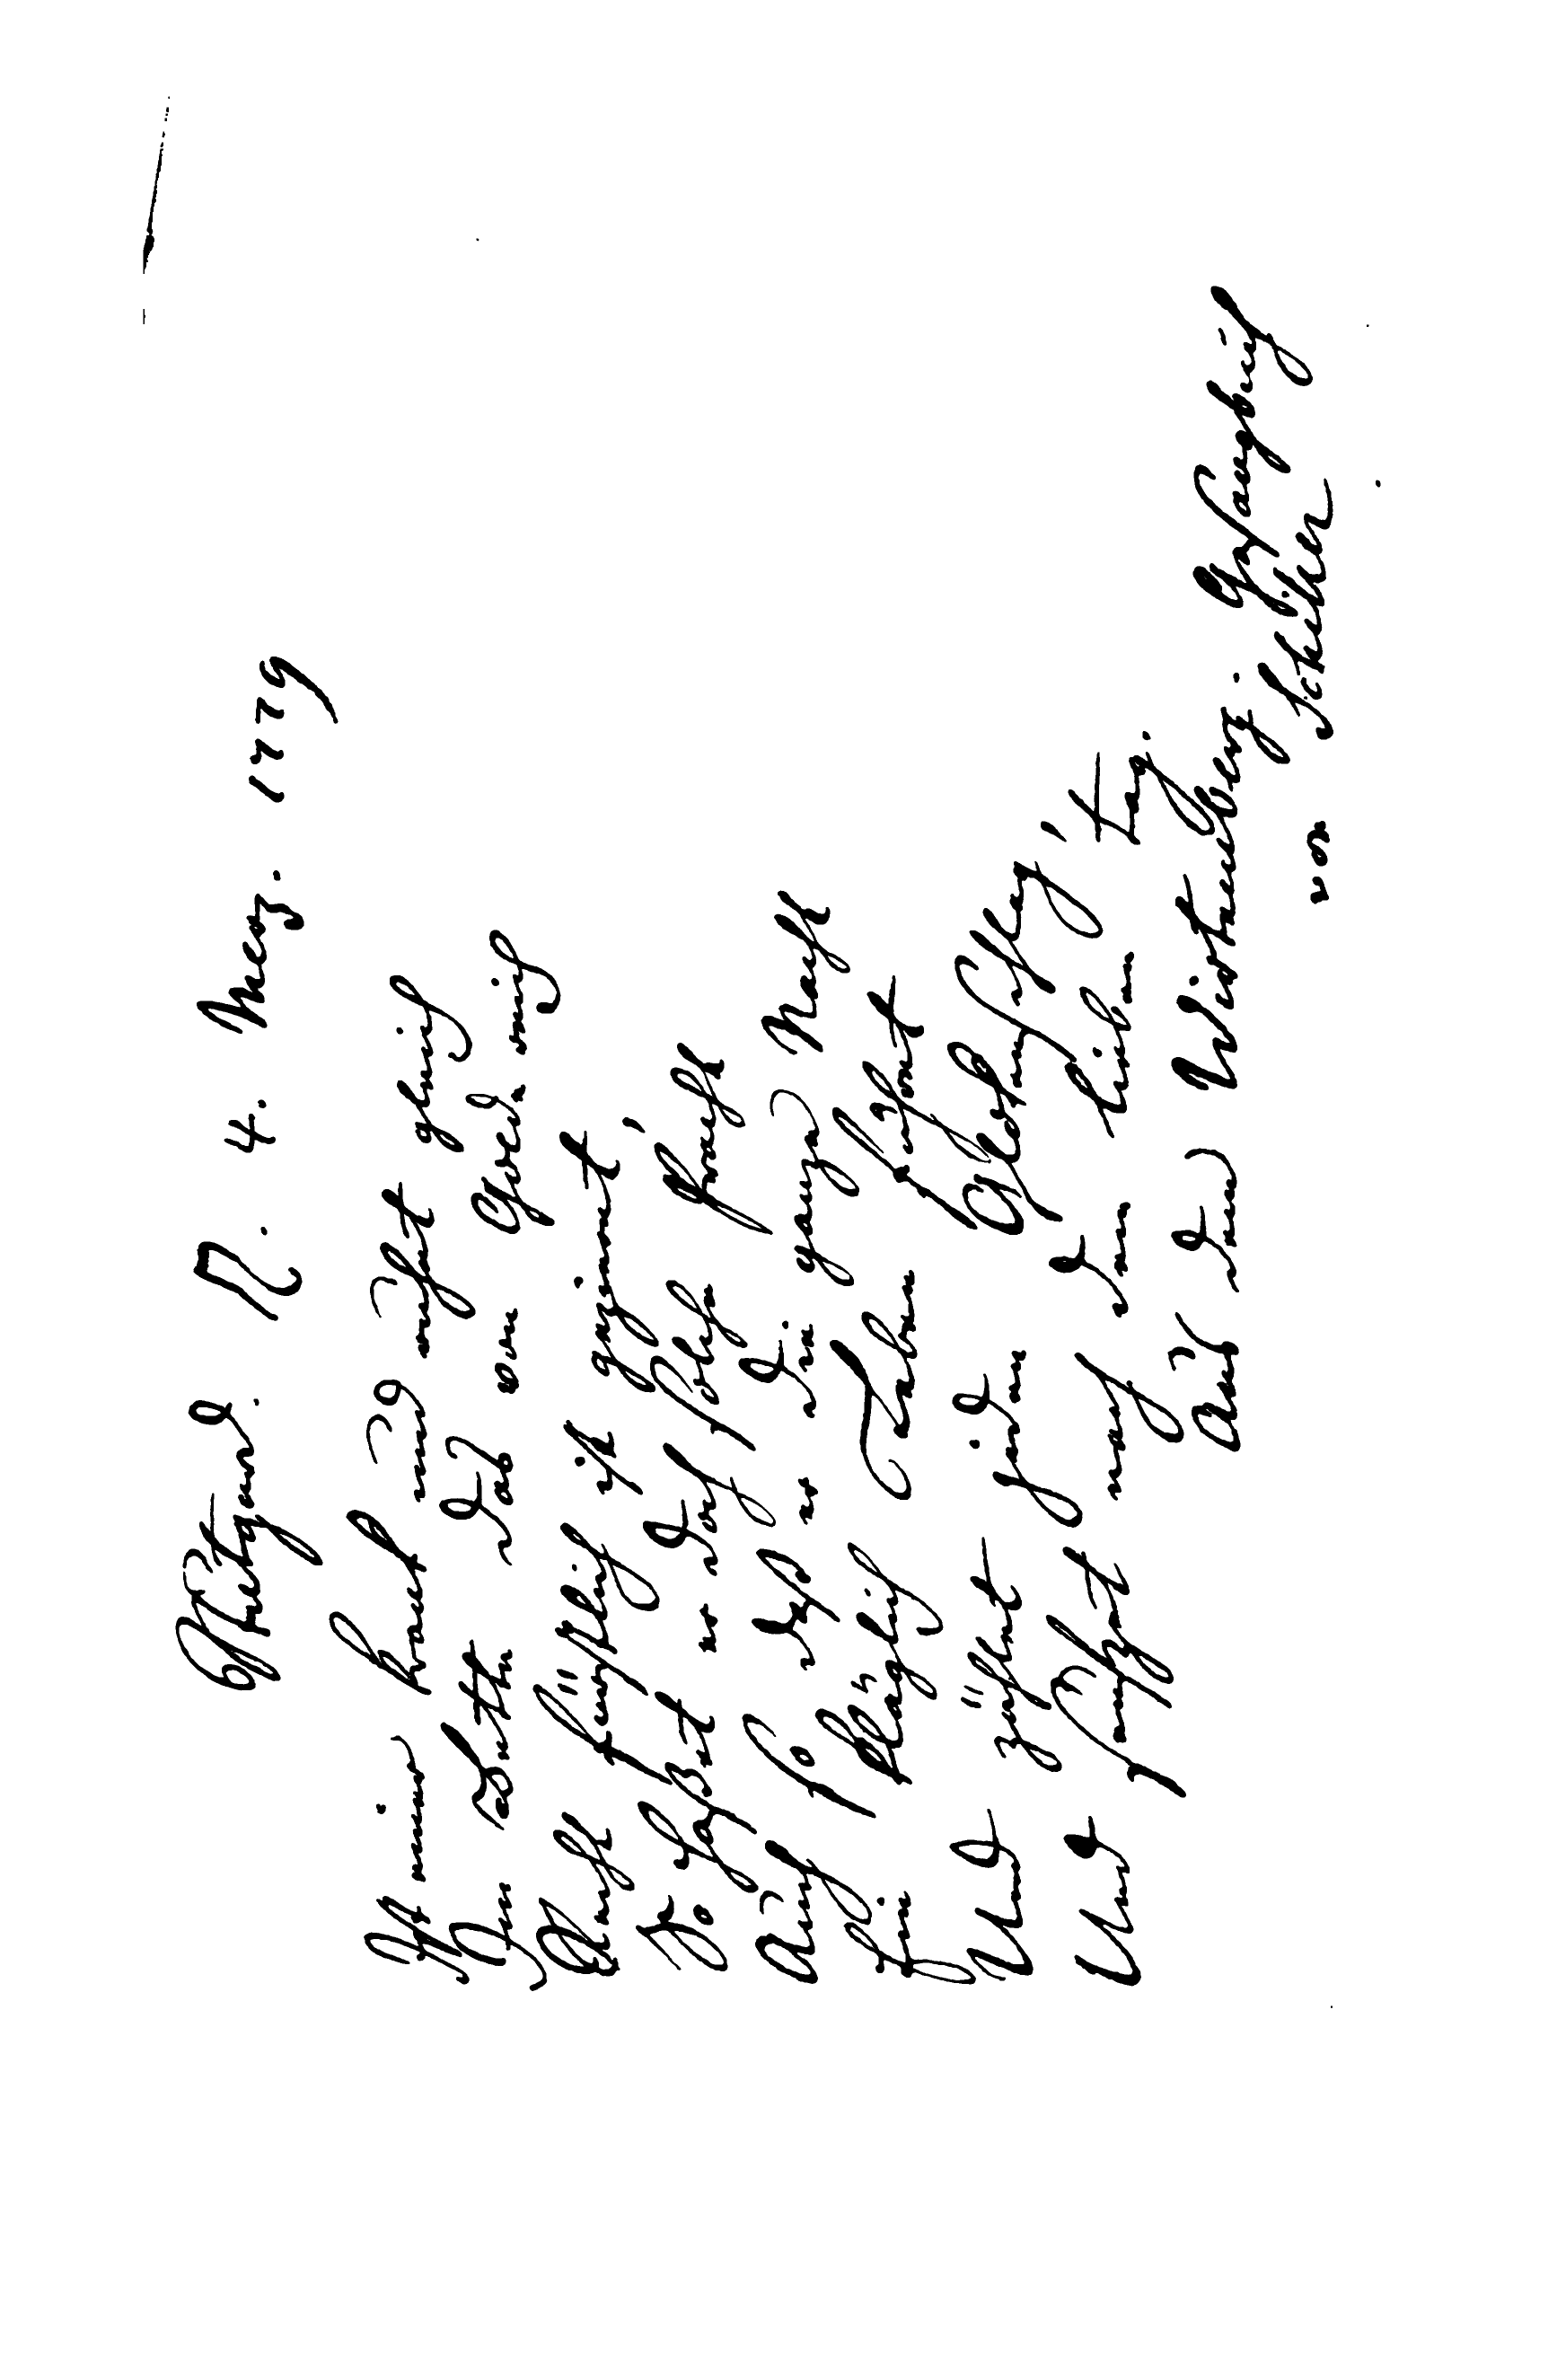 Stutgard. D. 4. Merz. 1779
Ist einer krank und ruhet gleich
Im Bette das von Golde reich
Recht fürstlich ist geziert
So hasset er doch solche Pracht
Auch so daß er die ganze Nacht
Ein kläglich Leben führt
Und zählet jeden Glokenschlag,
Und seufzet nach dem lieben Tag.
Aus dem Wirtemberg. Gsangbuch
von Schiller